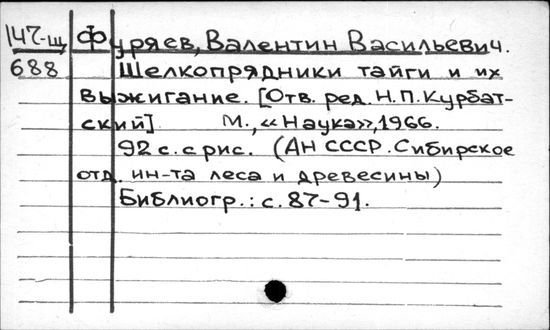 147-щ Фуряев, Валентин Васильевич.
688 Шелкопрядники тайги и их
выжигание. [Отв. ред. Н.П. Курбат-
ский] М., «Наука», 1966.
92 с. с рис. (АН СССР. Сибирское
отд. ин-та леса и древесины)
Библиогр.: с. 87-91.